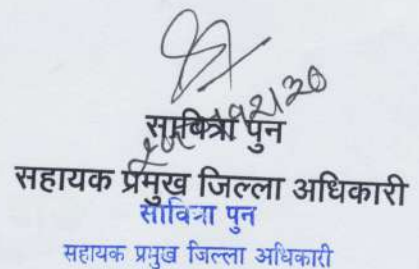 सावित्रा पुन
सहायक प्रमुख जिल्ला अधिकारी
सावित्रा पुन
सहायक प्रमुख जिल्ला अधिकारी